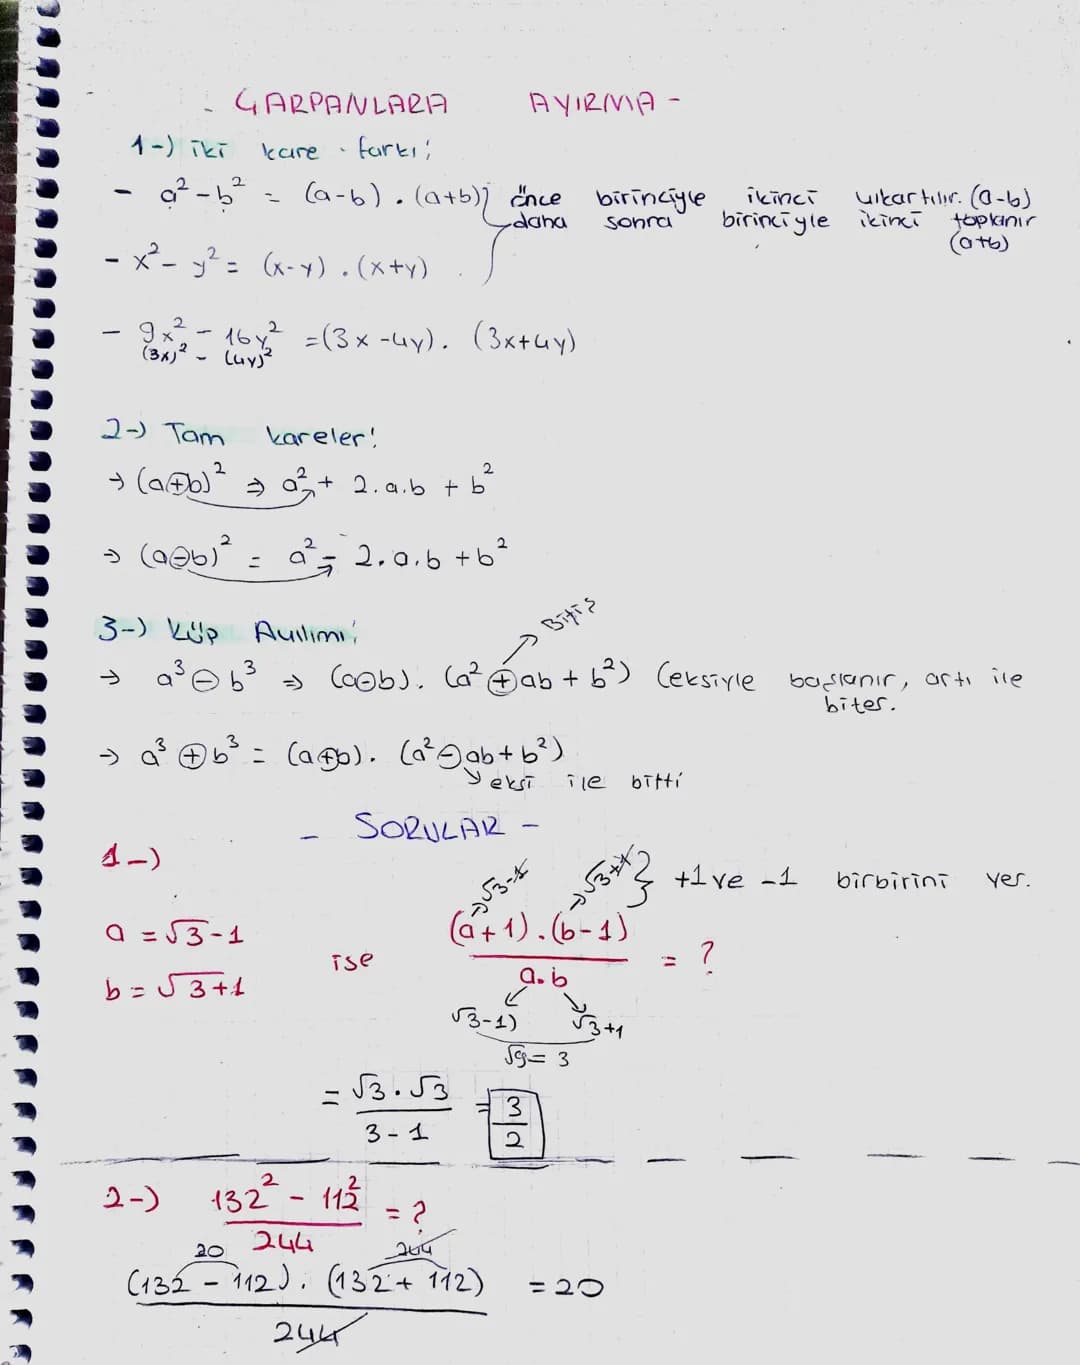 - ÇARPANLARA AYIRMA -
1-) iki kare farkı;
- a² - b² = (a-b) . (a+b) önce birinciyle ikinci çıkartılır. (a-b)
daha sonra birinciyle ikinci toplanır
(a+b)
- x² - y² = (x-y) . (x+y)
- 9x² - 16y² = (3x-4y) . (3x+4y)
(3x)² - (4y)²
2-) Tam kareler!
→ (a+b)² ⇒ a² + 2.a.b + b²
→ (a-b)² = a² - 2.a.b + b²
3-) Küp Açılımı;
Bitiş
→ a³ - b³ ⇒ (a-b). (a² + ab + b²) (eksiyle başlanır, artı ile
biter.
→ a³ + b³ = (a+b). (a² - ab + b²)
eksi ile bitti
- SORULAR -
1-)
√3-1 √3+1 } +1 ve -1 birbirini yer.
a = √3-1
b = √3+1
ise
(a+1).(b-1)
= ?
a.b
√3-1) √3+1
√9 = 3
= √3.√3 / 3-1 = 3/2
2-) 132² - 112² = ?
244
20 244
(132 - 112). (132 + 112) = 20
244